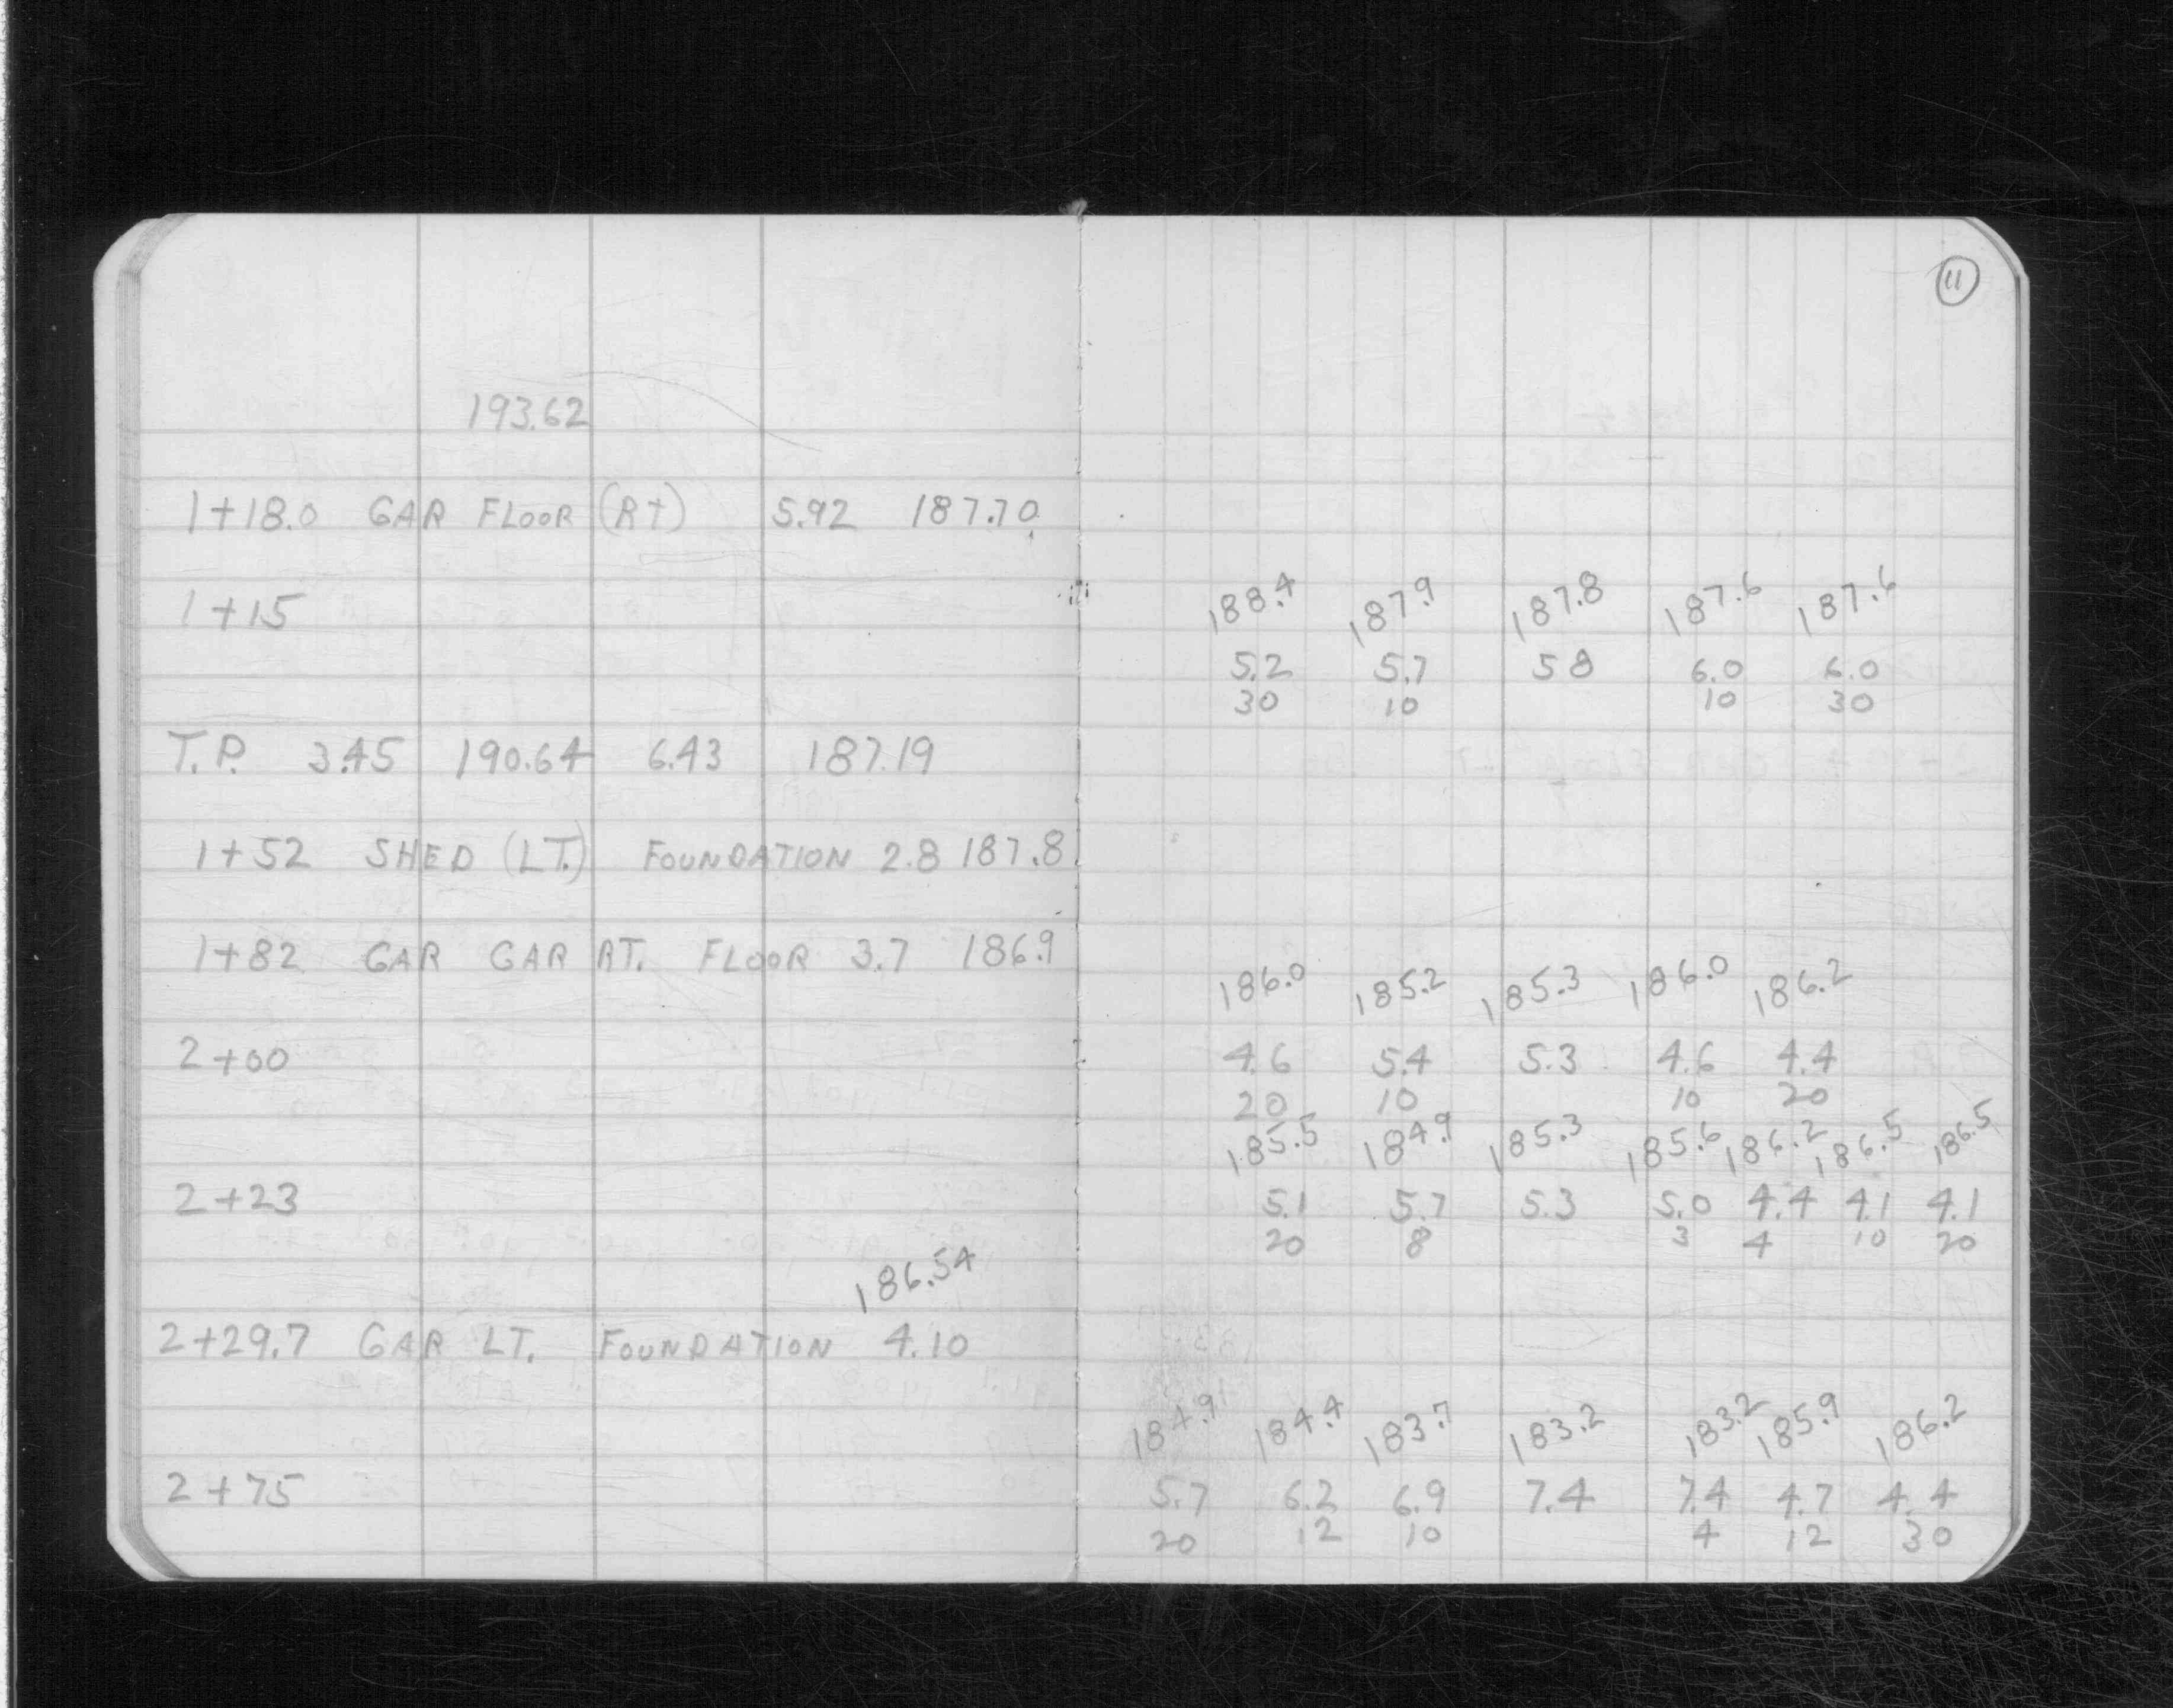 11
193.62
1+18.0 GAR FLOOR (Rt) 5.92 187.70
1+15 188.4 187.9 187.8 187.6 187.6
5.2 5.7 5 8 6.0 6.0
30 10 10 30
T.P. 3.45 190.64 6.43 187.19
1+52 SHED (LT.) FOUNDATION 2.8 187.8
1+82 GAR GAR RT. FLOOR 3.7 186.9
186.0 185.2 185.3 186.0 186.2
2+00 4.6 5.4 5.3 4.6 4.4
20 10 10 20
185.5 184.9 185.3 185.6 186.2 186.5 186.5
2+23 5.1 5.7 5.3 5.0 4.4 4.1 4.1
20 8 3 4 10 20
186.54
2+29.7 GAR LT. FOUNDATION 4.10
184.9 184.4 183.7 183.2 183.2 185.9 186.2
2+75 5.7 6.2 6.9 7.4 7.4 4.7 4.4
20 12 10 4 12 30